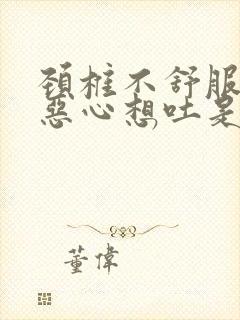 頚椎不舒服
惡心想吐是
董偉